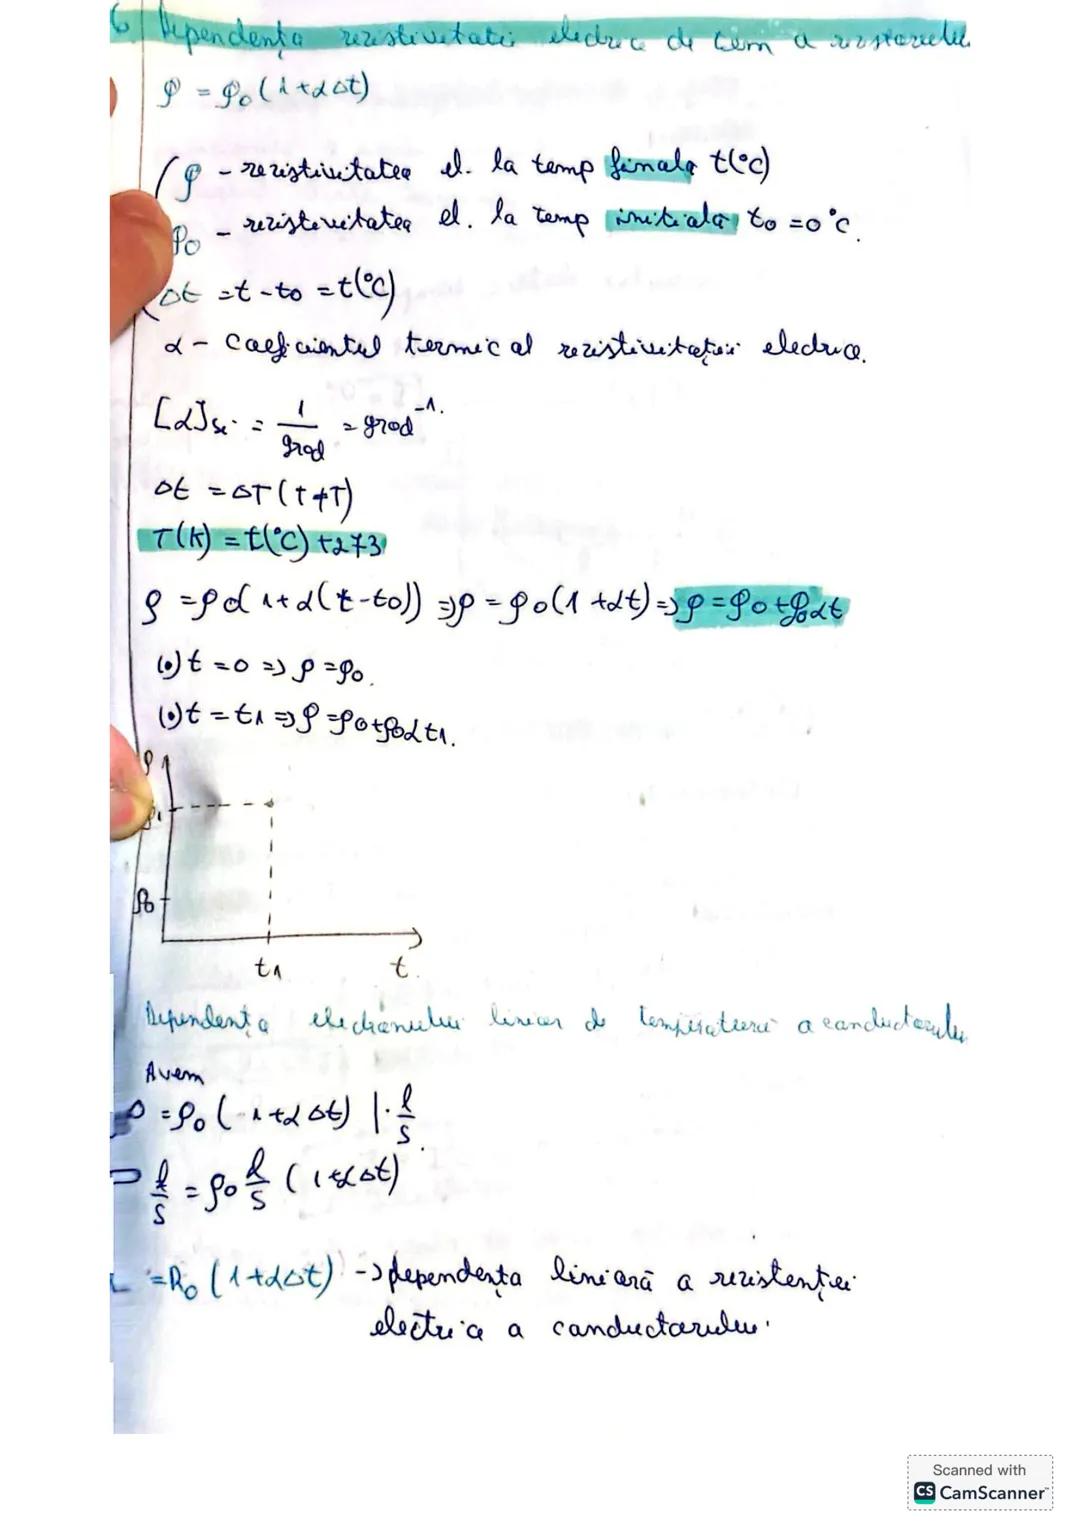 6. Dependența rezistivitatii electrice de tem a rezistorului
ρ = ρ₀(1+αΔt)
ρ - rezistivitatea el. la temp finala t(°C)
ρ₀ - rezistivitatea el. la temp initiala t₀ =0°C.
Δt =t-t₀ =t(°C)
α - Coeficientul termic al rezistivitații electrice.
[α]SI = 1/grad = grad⁻¹.
Δt = ΔT (t≠T)
T(K) = t(°C) +273
ρ =ρ₀(1+α(t-t₀)) =>ρ = ρ₀(1+αt)=>ρ=ρ₀+ρ₀αt
(•)t =0 => ρ =ρ₀.
(•)t = t₁ =>ρ =ρ₀+ρ₀αt₁.
ρ
ρ₁
ρ₀
t₁ t.
Dependența liniar de temperatura a conductorului
Avem
ρ =ρ₀(1+αΔt) |·l/S.
l/S = ρ₀ l/S (1+αΔt)
=R₀ (1+αΔt) -> dependența liniară a rezistenței
electrice a conductorului.
Scanned with
CS CamScanner™